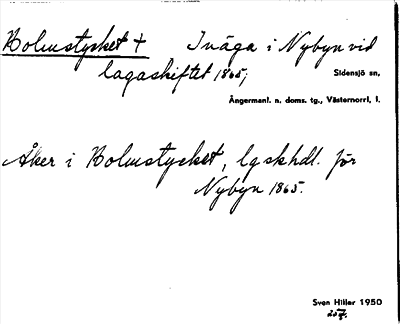 Bolmstycket + Inäga i Nybyn vid
lagaskiftet 1865;
Sidensjö sn,
Ångermanl. n. doms. tg., Västernorrl, l.
Åker i Bolmstycket, lgskhdl. för
Nybyn 1865.
Sven Hiller 1950